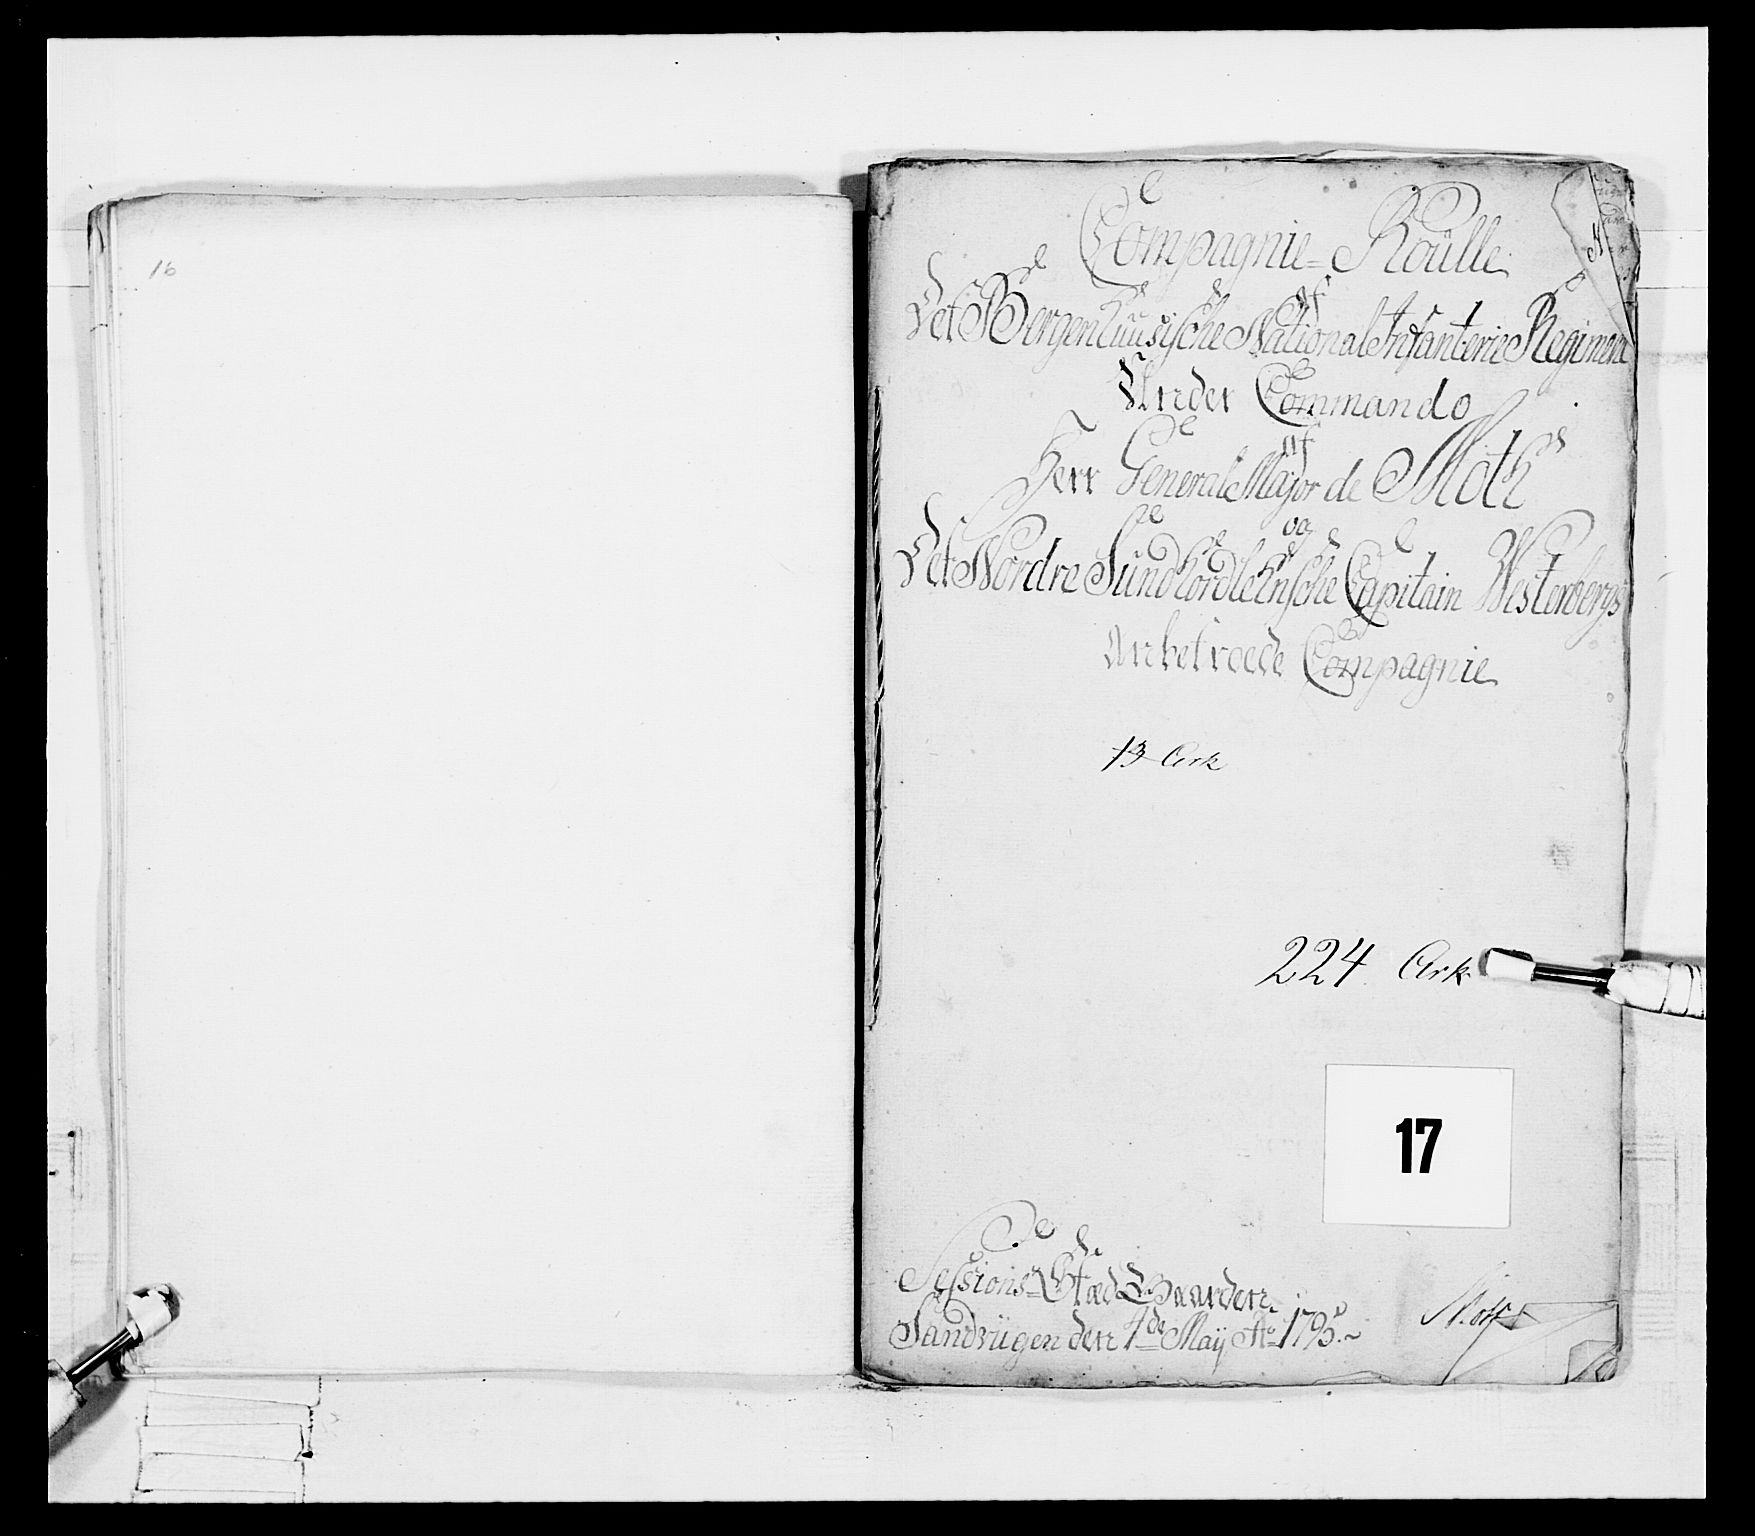 16
Compagnie=Roulle
af
Det Bergenhuusische National Infanterie Regiment
Under Commando
af
Herr General Major de Moth
og
Det Nordre Sundhordlehnsche Capitain Westerbergs
Anbetroede Compagnie
13 Ark
224 Ark
17
Sessions=Stæd Gaarden
Sandvügen den 4de Maÿ Ao 1795.